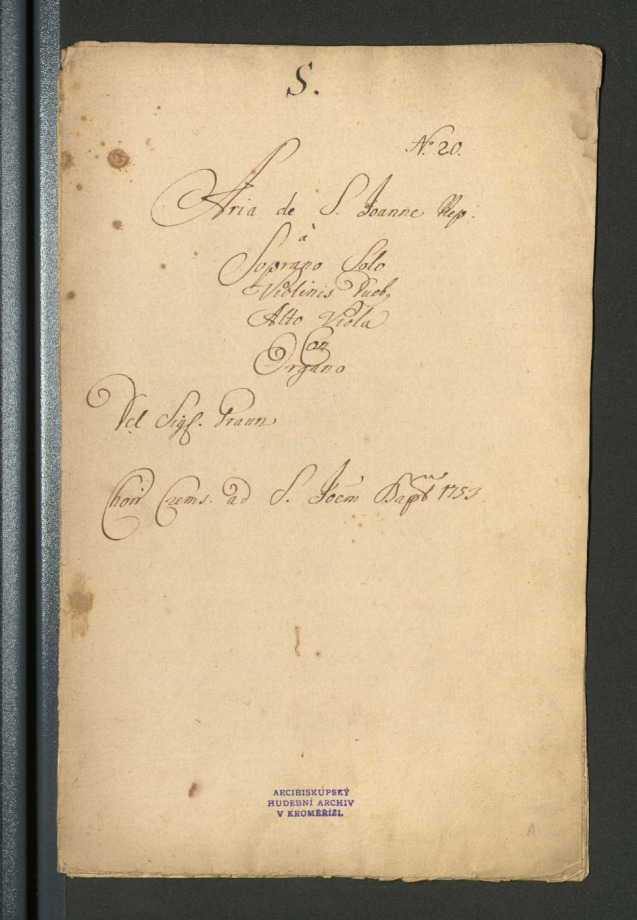 S.
No 20.
Aria de S. Joanne Nep:
à
Soprano Solo
Violinis Duob,
Alto Viola
Con
Organo
Del Sigf. Graun
Chori Crems. ad S. Joem Bapt 1753
ARCIBISKUPSKÝ
HUDEBNÍ ARCHIV
V KROMĚŘÍŽI.
1